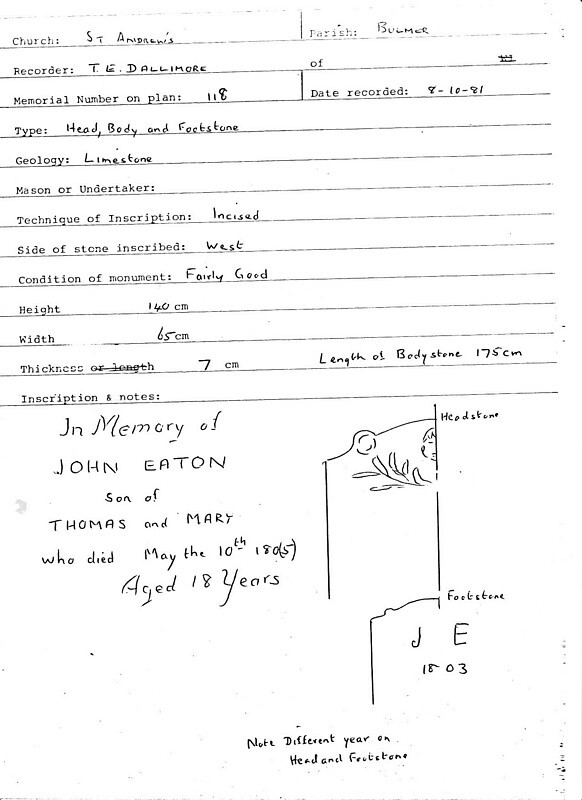 Church: St Andrew's Parish: Bulmer
Recorder: T. E. Dallimore of
Memorial Number on plan: 118 Date recorded: 8-10-81
Type: Head, Body and Footstone
Geology: Limestone
Mason or Undertaker:
Technique of Inscription: Incised
Side of stone inscribed: West
Condition of monument: Fairly Good
Height 140 cm
Width 65 cm
Thickness or length 7 cm Length of Bodystone 175 cm
Inscription & notes:
Headstone
In Memory of
JOHN EATON
Son of
THOMAS and MARY
who died May the 10th 180(5)
Aged 18 Years
Footstone
J E
1803
Note Different year on
Head and Footstone